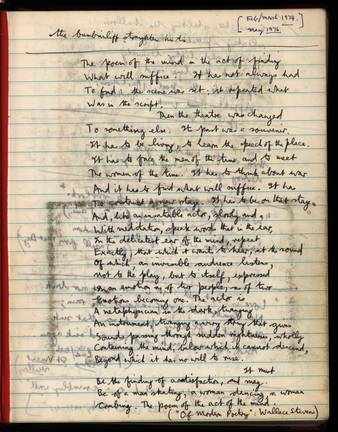 [Feb/March 1974.
May 1976.]
the
The poem of the mind in the act of finding
What will suffice. It has not always had
To find: the scene was set; it repeated what
Was in the script.
Then the theatre was changed
To something else. Its past was a souvenir.
It has to be living, to learn the speech of the place.
It has to face the men of the time and to meet
The women of the time. It has to think about war
And it has to find what will suffice. It has
To construct a new stage. It has to be on that stage
And, like an insatiable actor, slowly and
With meditation, speak words that in the ear,
In the delicatest ear of the mind, repeat,
Exactly, that which it wants to hear, at the sound
Of which, an invisible audience listens,
Not to the play, but to itself, expressed
In an emotion as of two people, as of two
Emotions becoming one. The actor is
A metaphysician in the dark, twanging
An instrument, twanging a wiry string that gives
Sounds passing through sudden rightnesses, wholly
Containing the mind, below which it cannot descend,
Beyond which it has no will to rise.
It must
Be the finding of a satisfaction, and may
Be of a man skating, a woman dancing, a woman
Combing. The poem of the act of the mind.
("Of Modern Poetry": Wallace Stevens)